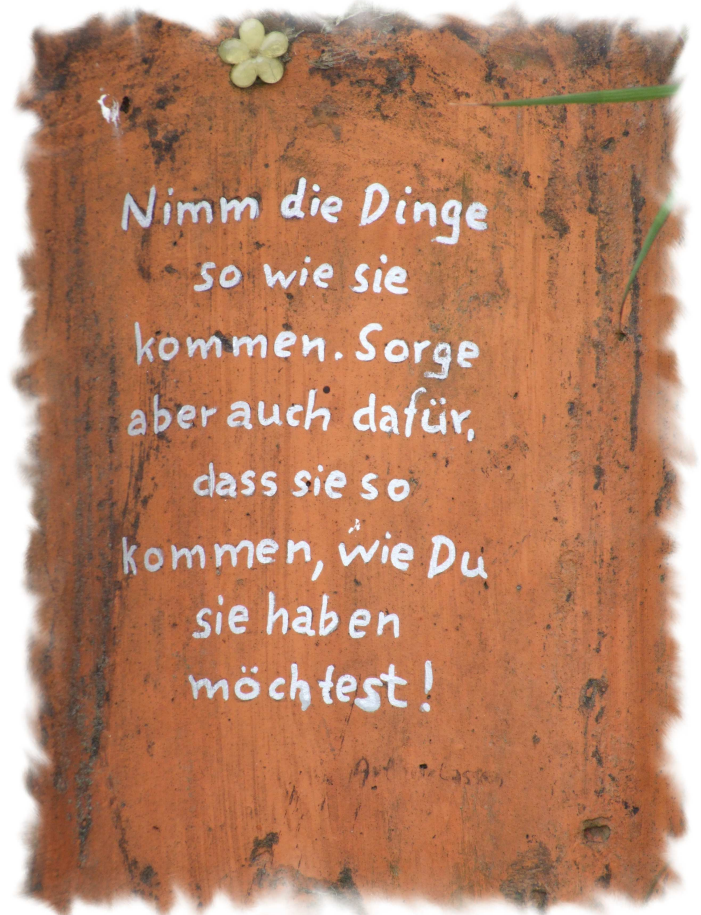 Nimm die Dinge
so wie sie
kommen. Sorge
aber auch dafür,
dass sie so
kommen, wie Du
sie haben
möchtest!